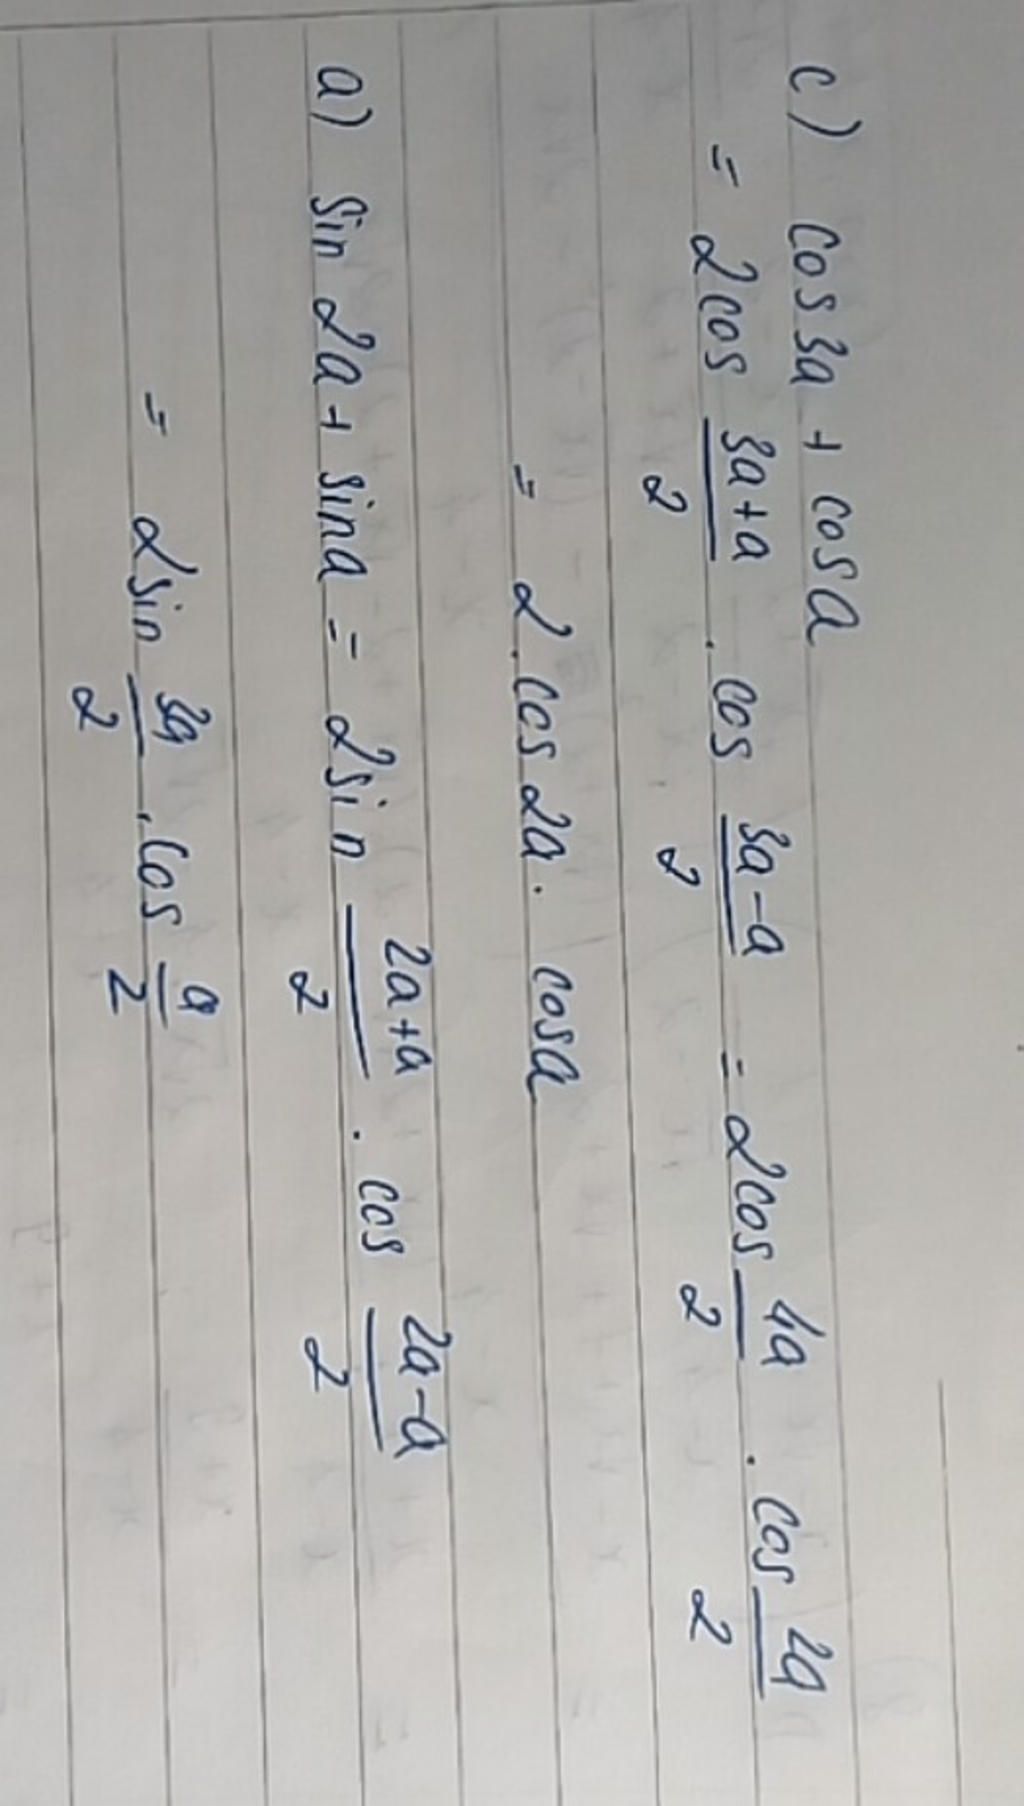 c) cos 3a + cos a
= 2cos (3a+a)/2 . cos (3a-a)/2 = 2cos 4a/2 . cos 2a/2
= 2 . cos 2a . cos a
a) sin 2a + sin a = 2sin (2a+a)/2 . cos (2a-a)/2
= 2sin 3a/2 . cos a/2